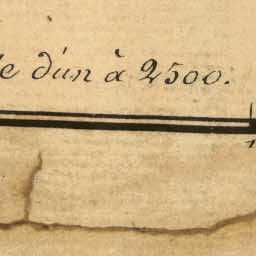 d'un à 2500.